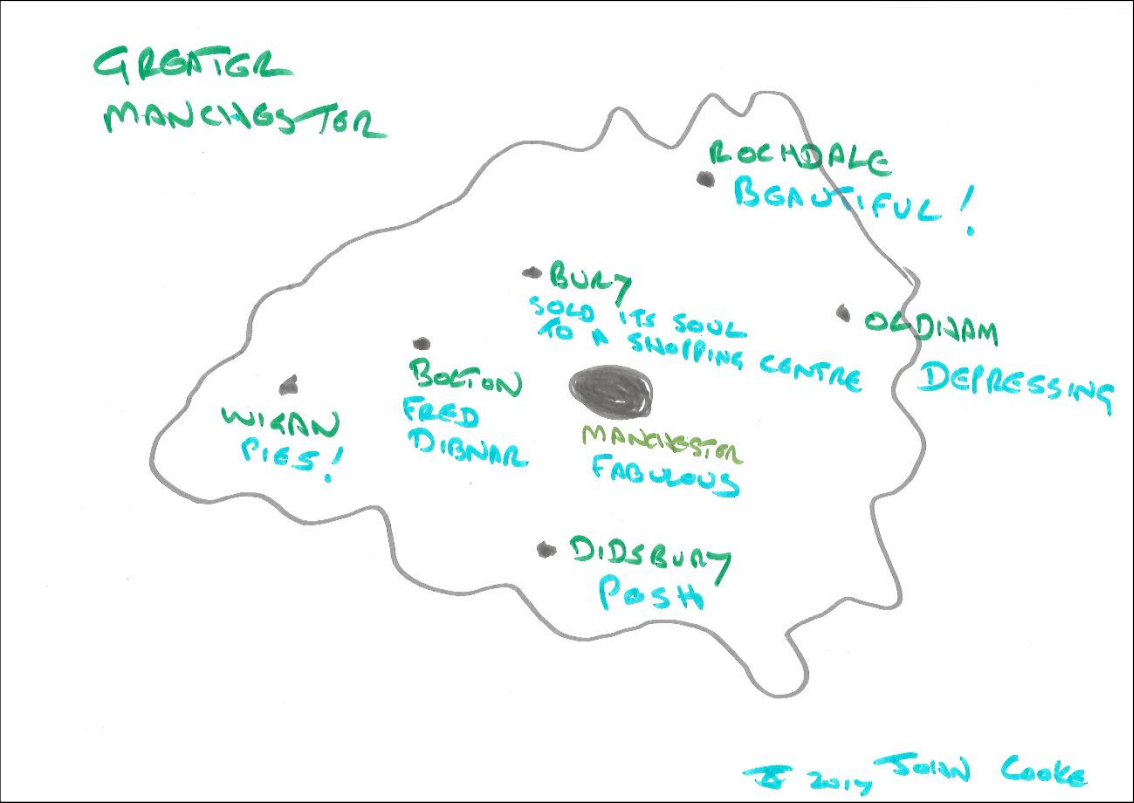 GREATER
MANCHESTER
ROCHDALE
BEAUTIFUL!
BURY
SOLD ITS SOUL
TO A SHOPPING CENTRE
OLDHAM
DEPRESSING
BOLTON
FRED
DIBNAR
WIGAN
PIES!
MANCHESTER
FABULOUS
DIDSBURY
POSH
2017 JOHN COOKE